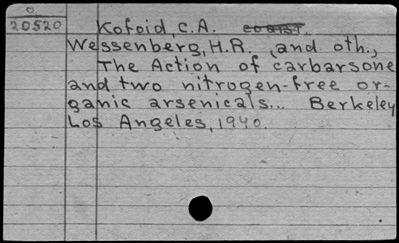 O
20520 Kofoid, C.A.
Wessenberg, H.R. , and oth.,
The Action of carbarsone
and two nitrogen-free or-
ganic arsenicals... Berkeley
Los Angeles, 1940.